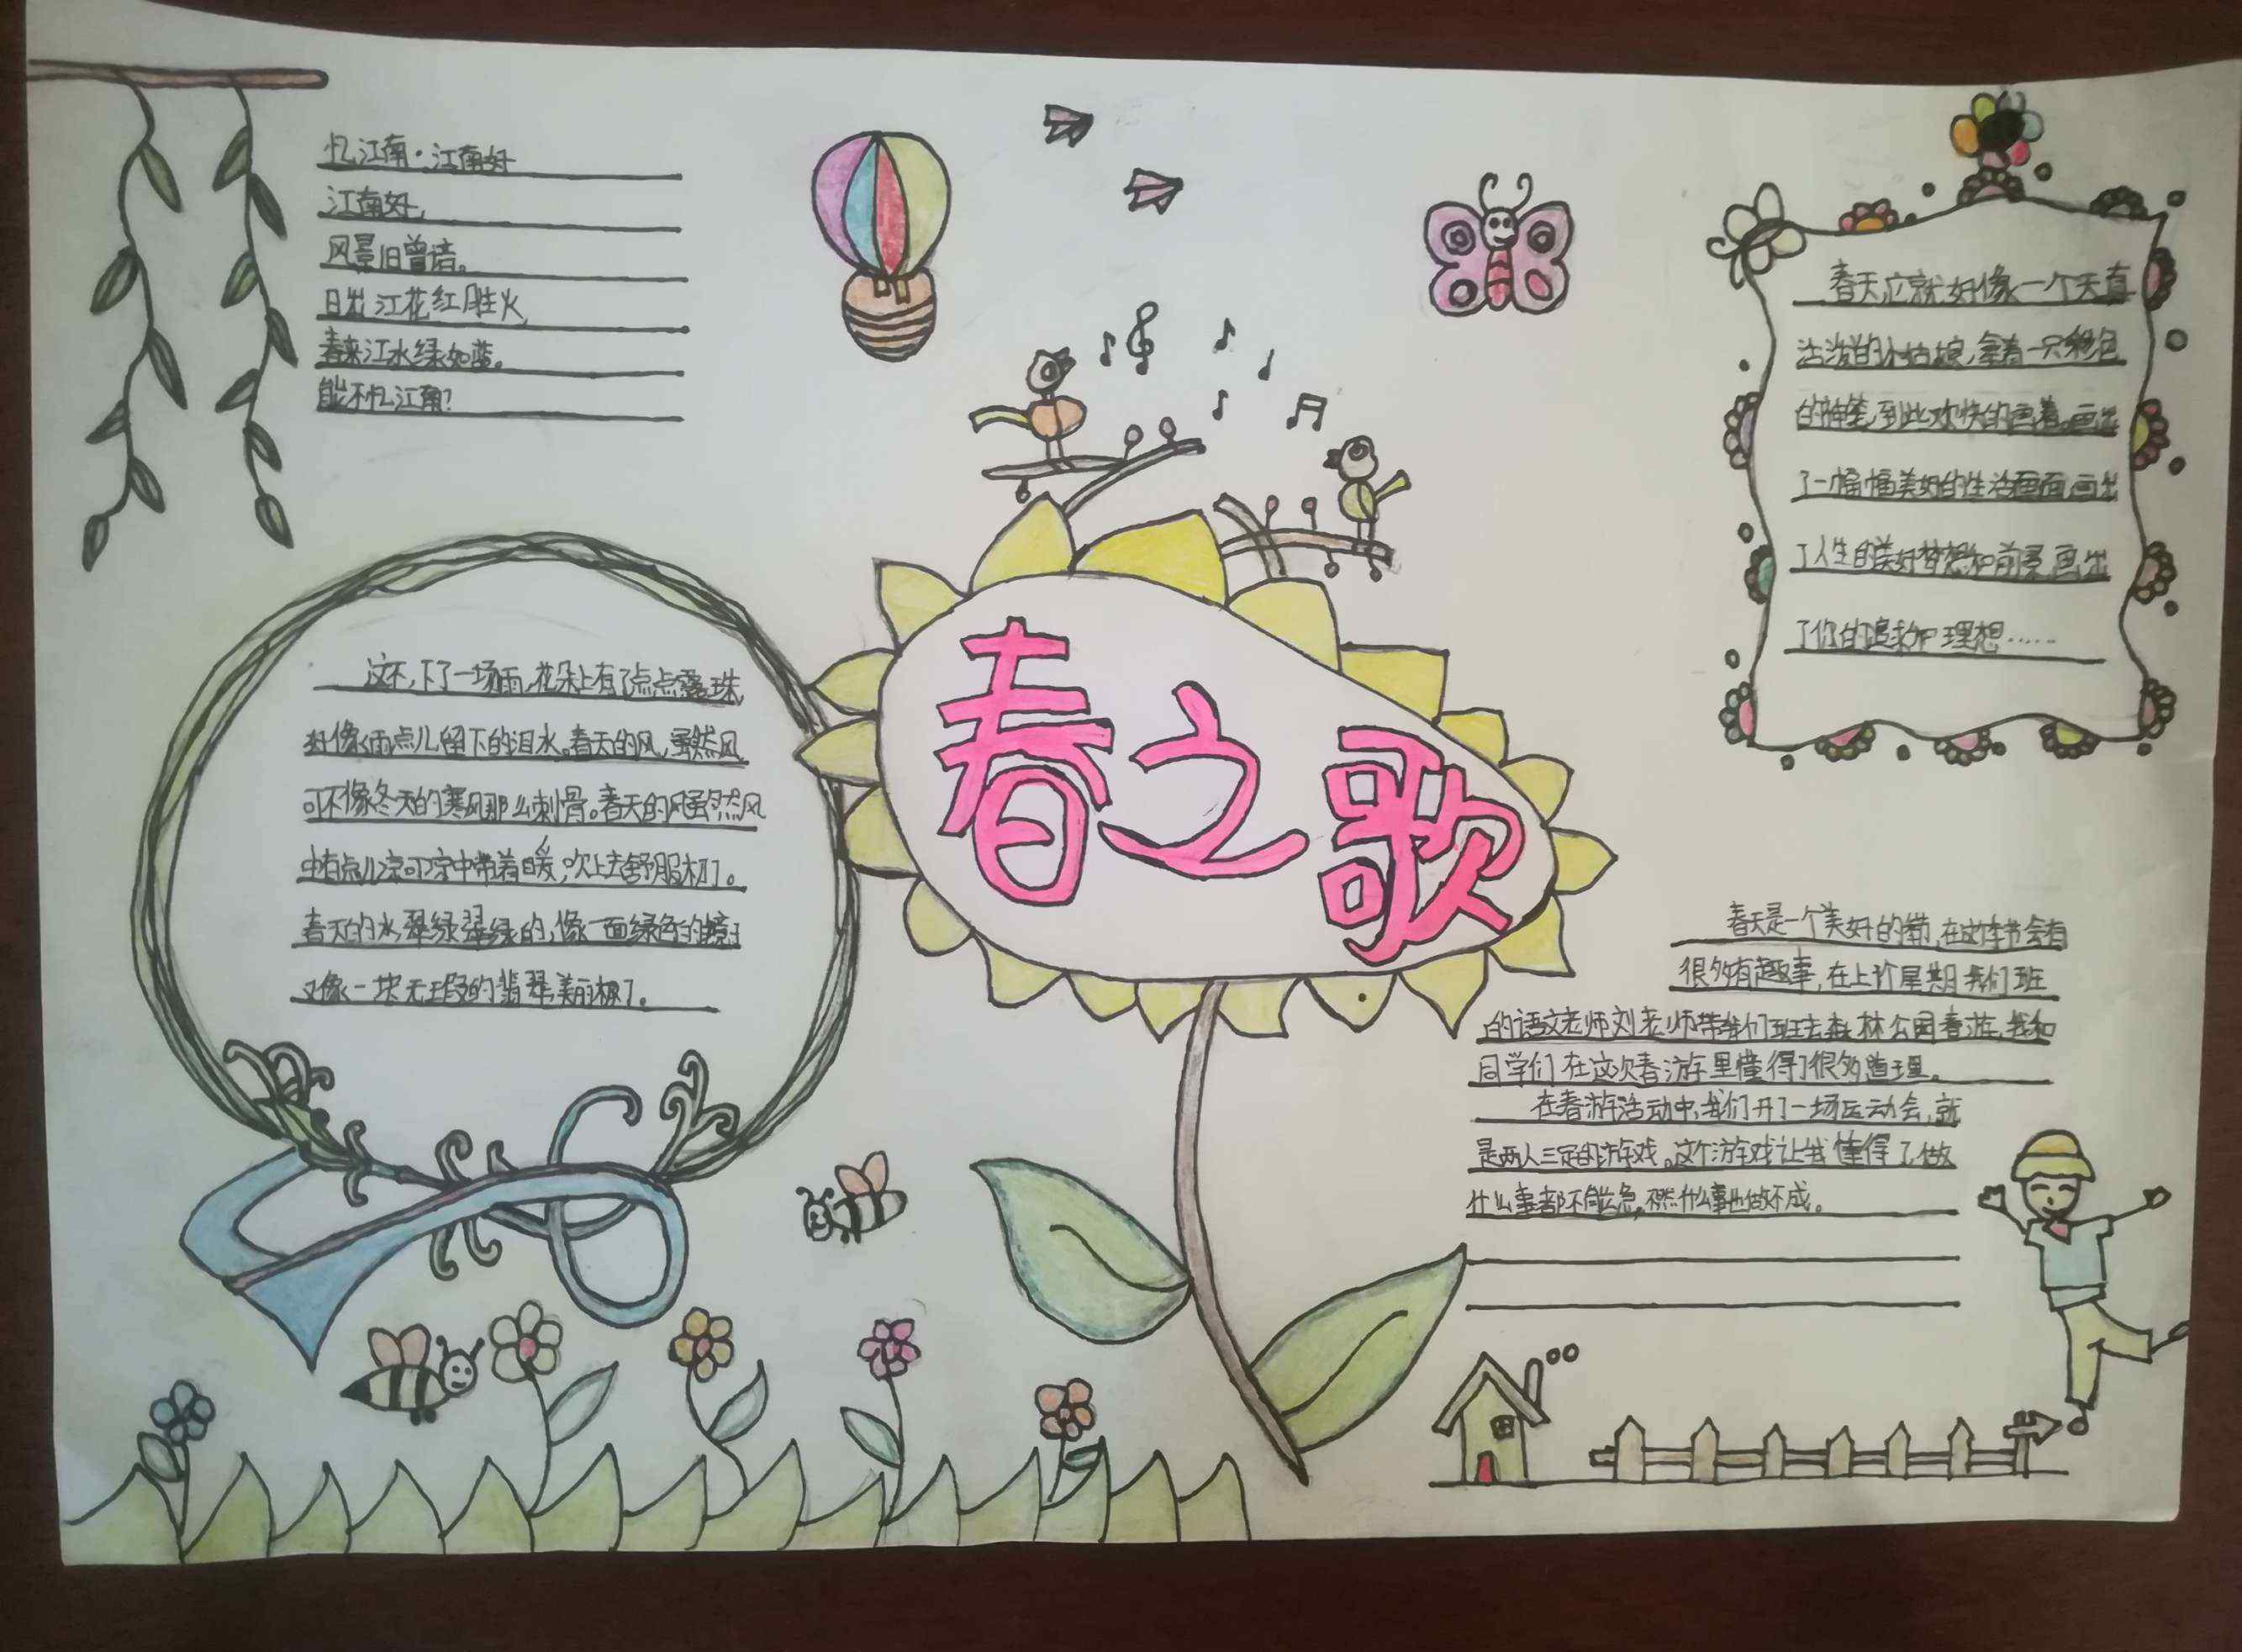 忆江南·江南好
江南好,
风景旧曾谙。
日出江花红胜火,
春来江水绿如蓝。
能不忆江南?
这不,下了一场雨,花朵上有了点点露珠,
好像雨点儿留下的泪水。春天的风,虽然风
可不像冬天的寒风那么刺骨。春天的风虽然风
中有点儿凉可凉中带着暖,吹上去舒服极了。
春天的水,翠绿翠绿的,像一面绿色的镜子
又像一块无瑕的翡翠美丽极了。
春之歌
春天,应就好像一个天真
活泼的小姑娘,拿着一只彩色
的神笔,到此欢快的画着。画出
了一幅幅美好的生活画面,画出
了人生的美好梦想和前景,画出
了你的追求和理想……
春天是一个美好的季节,在这季节会有
很多有趣事,在上个星期我们班
的语文老师刘老师带我们班去森林公园春游,我和
同学们在这次春游里懂得了很多道理。
在春游活动中,我们开了一场运动会,就
是两人三足的游戏。这个游戏让我懂得了,做
什么事都不能急,不然什么事也做不成。